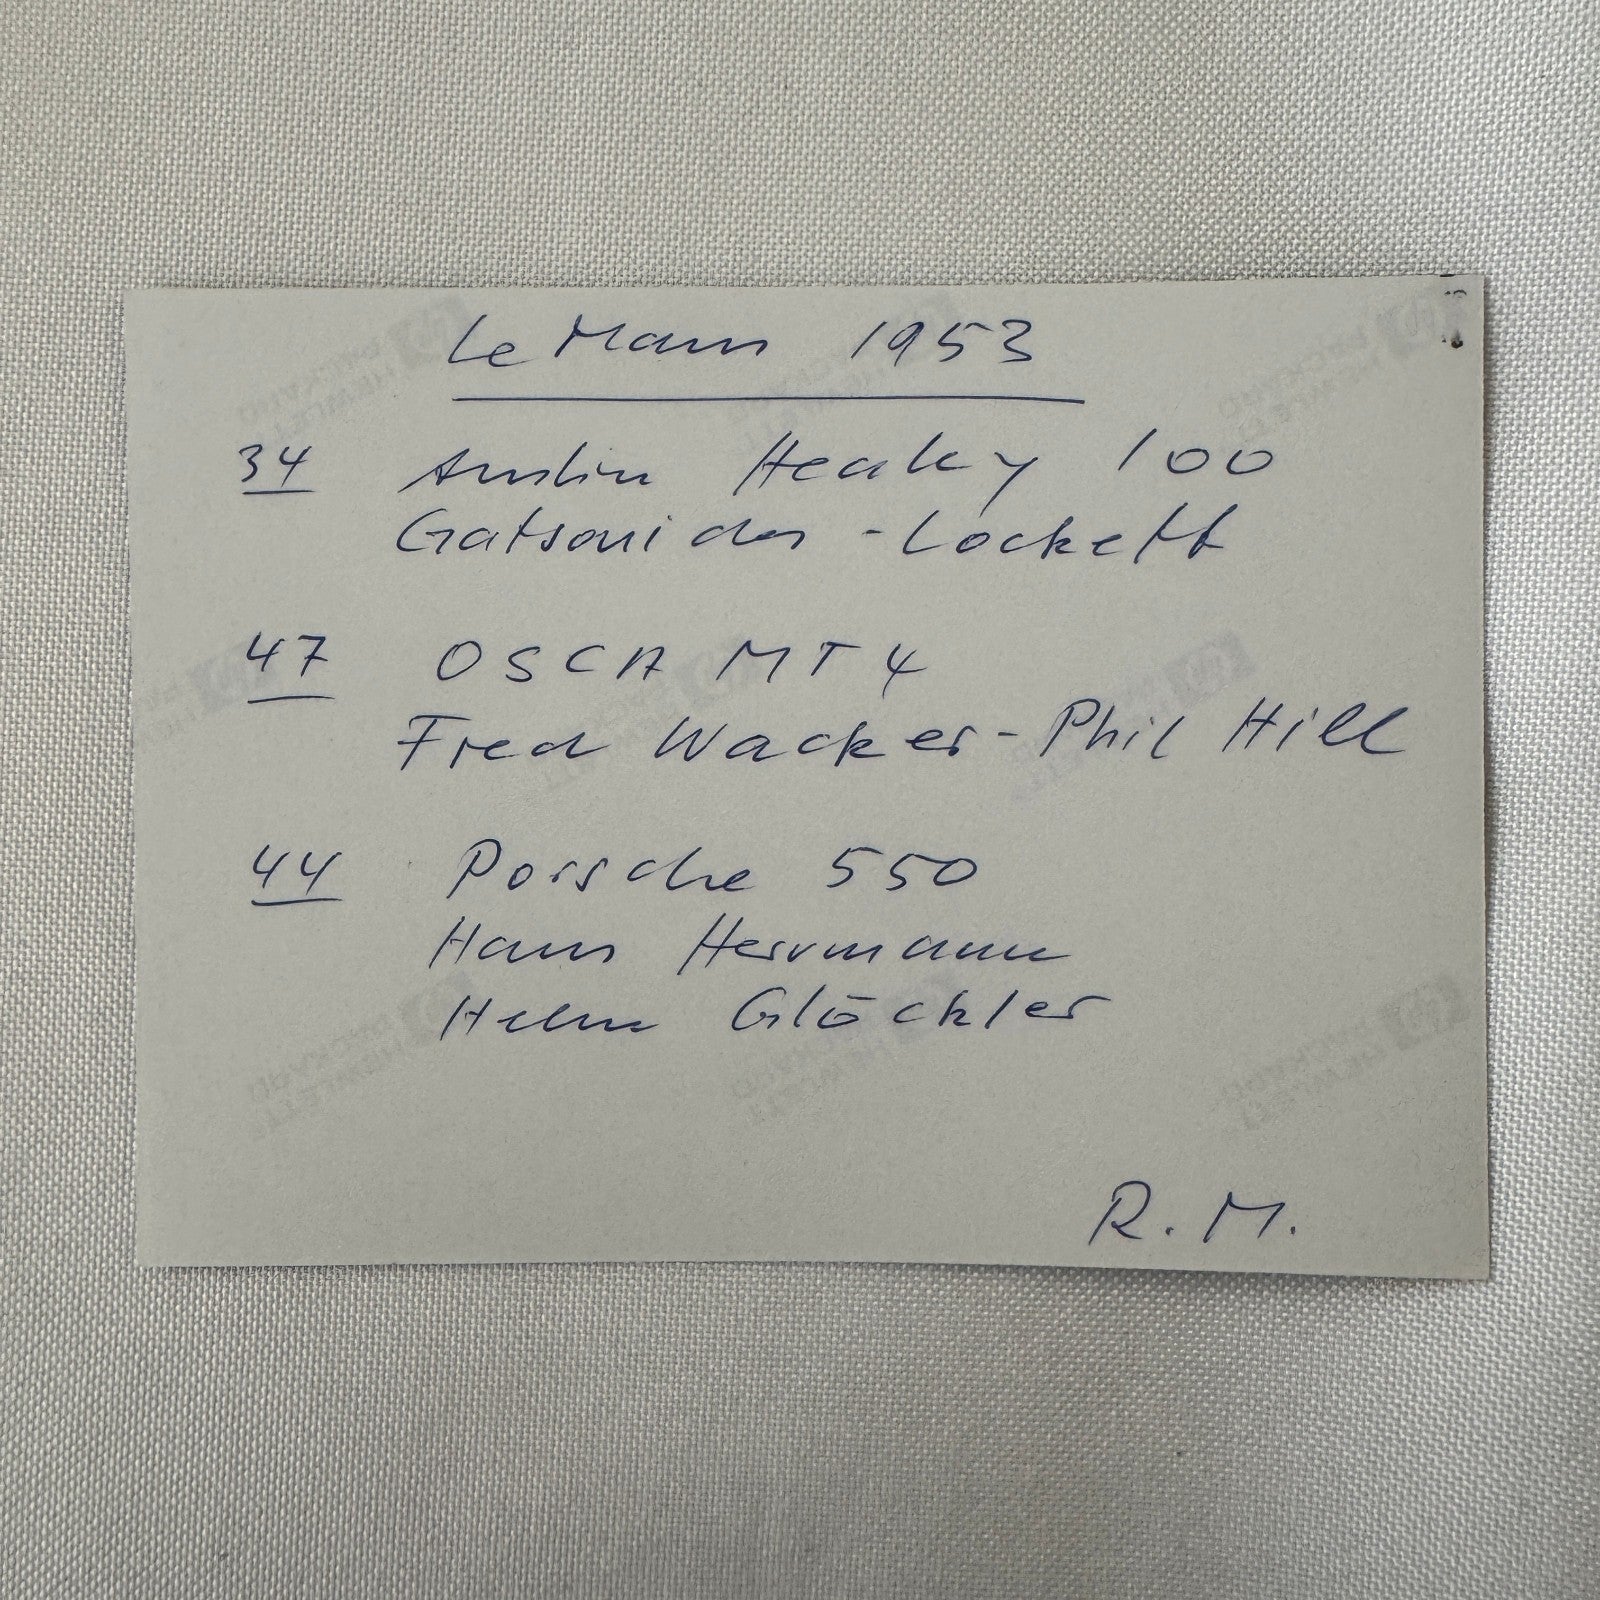 Le Mans 1953
34 Austin Healey 100
Gatsonides - Lockett
47 OSCA MT4
Fred Wacker - Phil Hill
44 Porsche 550
Hans Herrmann
Helm Glöckler
R. M.